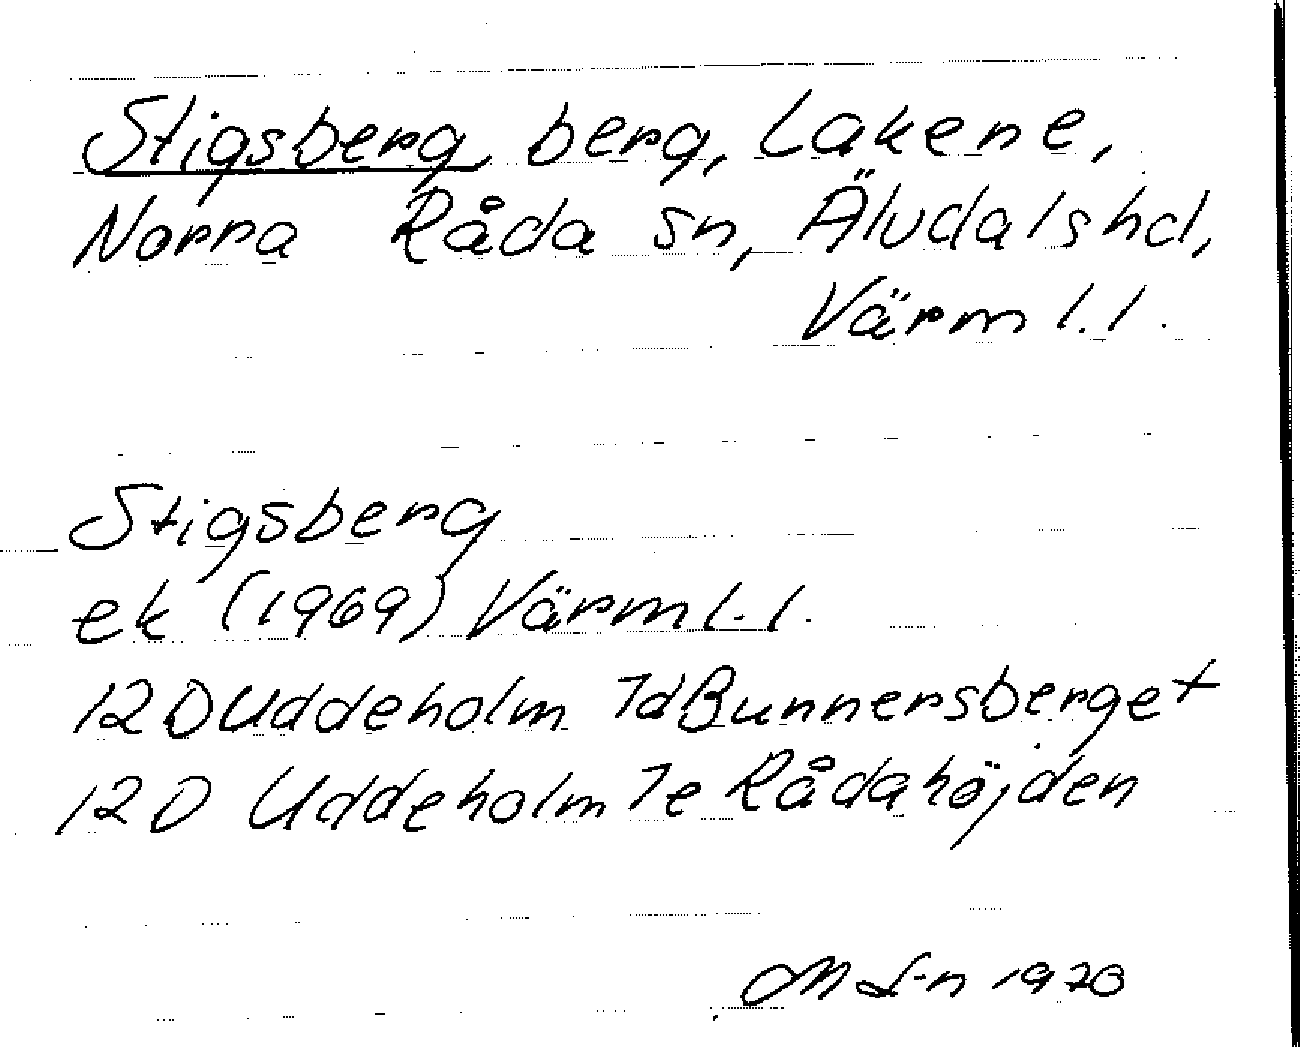 Stigsberg berg, Lakene,
Norra Råda sn, Älvdals hd,
Värml. l.
Stigsberg
ek (1969) Värml. l.
12D Uddeholm 7d Bunnersberget
12D Uddeholm 7e Rådahöjden
M L-n 1973